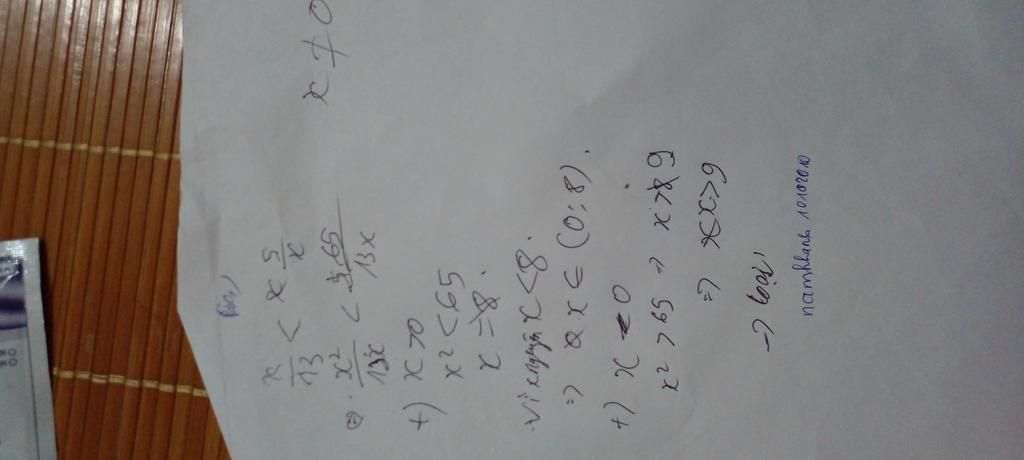 Bài)
x ≠ 0
x/13 < 5/x
⇔ x²/13x < 65/13x
+) x > 0
x² < 65
x = 8.
Vì x nguyên x < 8.
=> x ∈ (0; 8).
+) x < 0
x² > 65 => x > 9
=> x > 9
-> loại
namkhanh lolololo